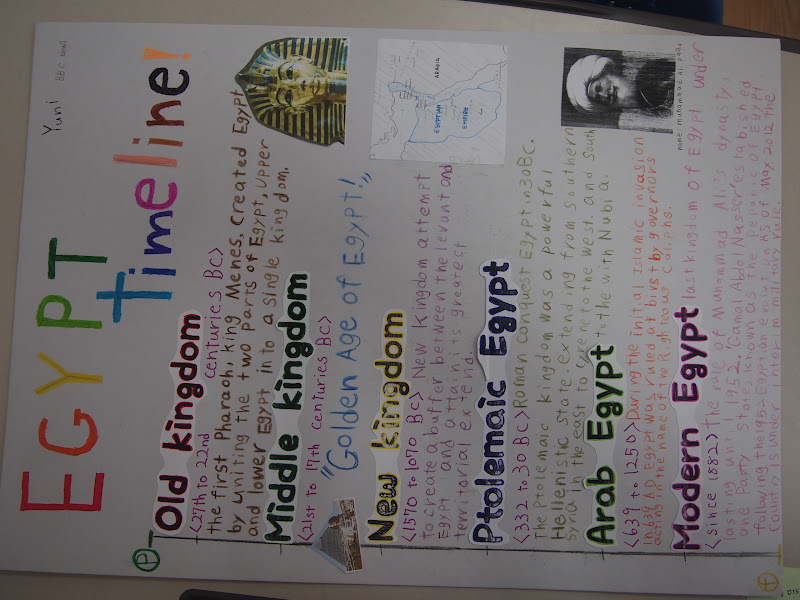 Yuni
BBC news
EGYPT
timeline!
Old kingdom
<27th to 22nd centuries BC>
the first Pharaoh, king Menes, created Egypt
by uniting the two parts of Egypt, upper
and lower Egypt in to a single kingdom.
Middle kingdom
<21st to 17th centuries BC>
"Golden Age of Egypt!"
New kingdom
<1570 to 1070 BC> New kingdom attempt
to create a buffer between the levant and
Egypt and attain its greatest
territorial extend.
ARABIA
EGYPTIAN
EMPIRE
Ptolemaic Egypt
<332 to 30 BC> Roman conquest Egypt in 30 BC.
The Ptolemaic kingdom was a powerful
Hellenistic state, extending from southern
Syria in the east to Cyrene to the west, and south
to the with Nubia.
Arab Egypt
<639 to 1250> During the initial Islamic invasion
In 639 AD Egypt was ruled at birst by governors
acting in the name of the Righteous Caliphs.
name muhammad Ali pasa
Modern Egypt
<since 1882> The rule of Muhammad Ali's dynasty
last kingdom of Egypt under
lasting until 1952. Gamal Abdel Nasser established
one party State, known as the Republic of Egypt
following the 1952 Egyptian evolution AS of Max 2012 the
Country is under interim military rule.